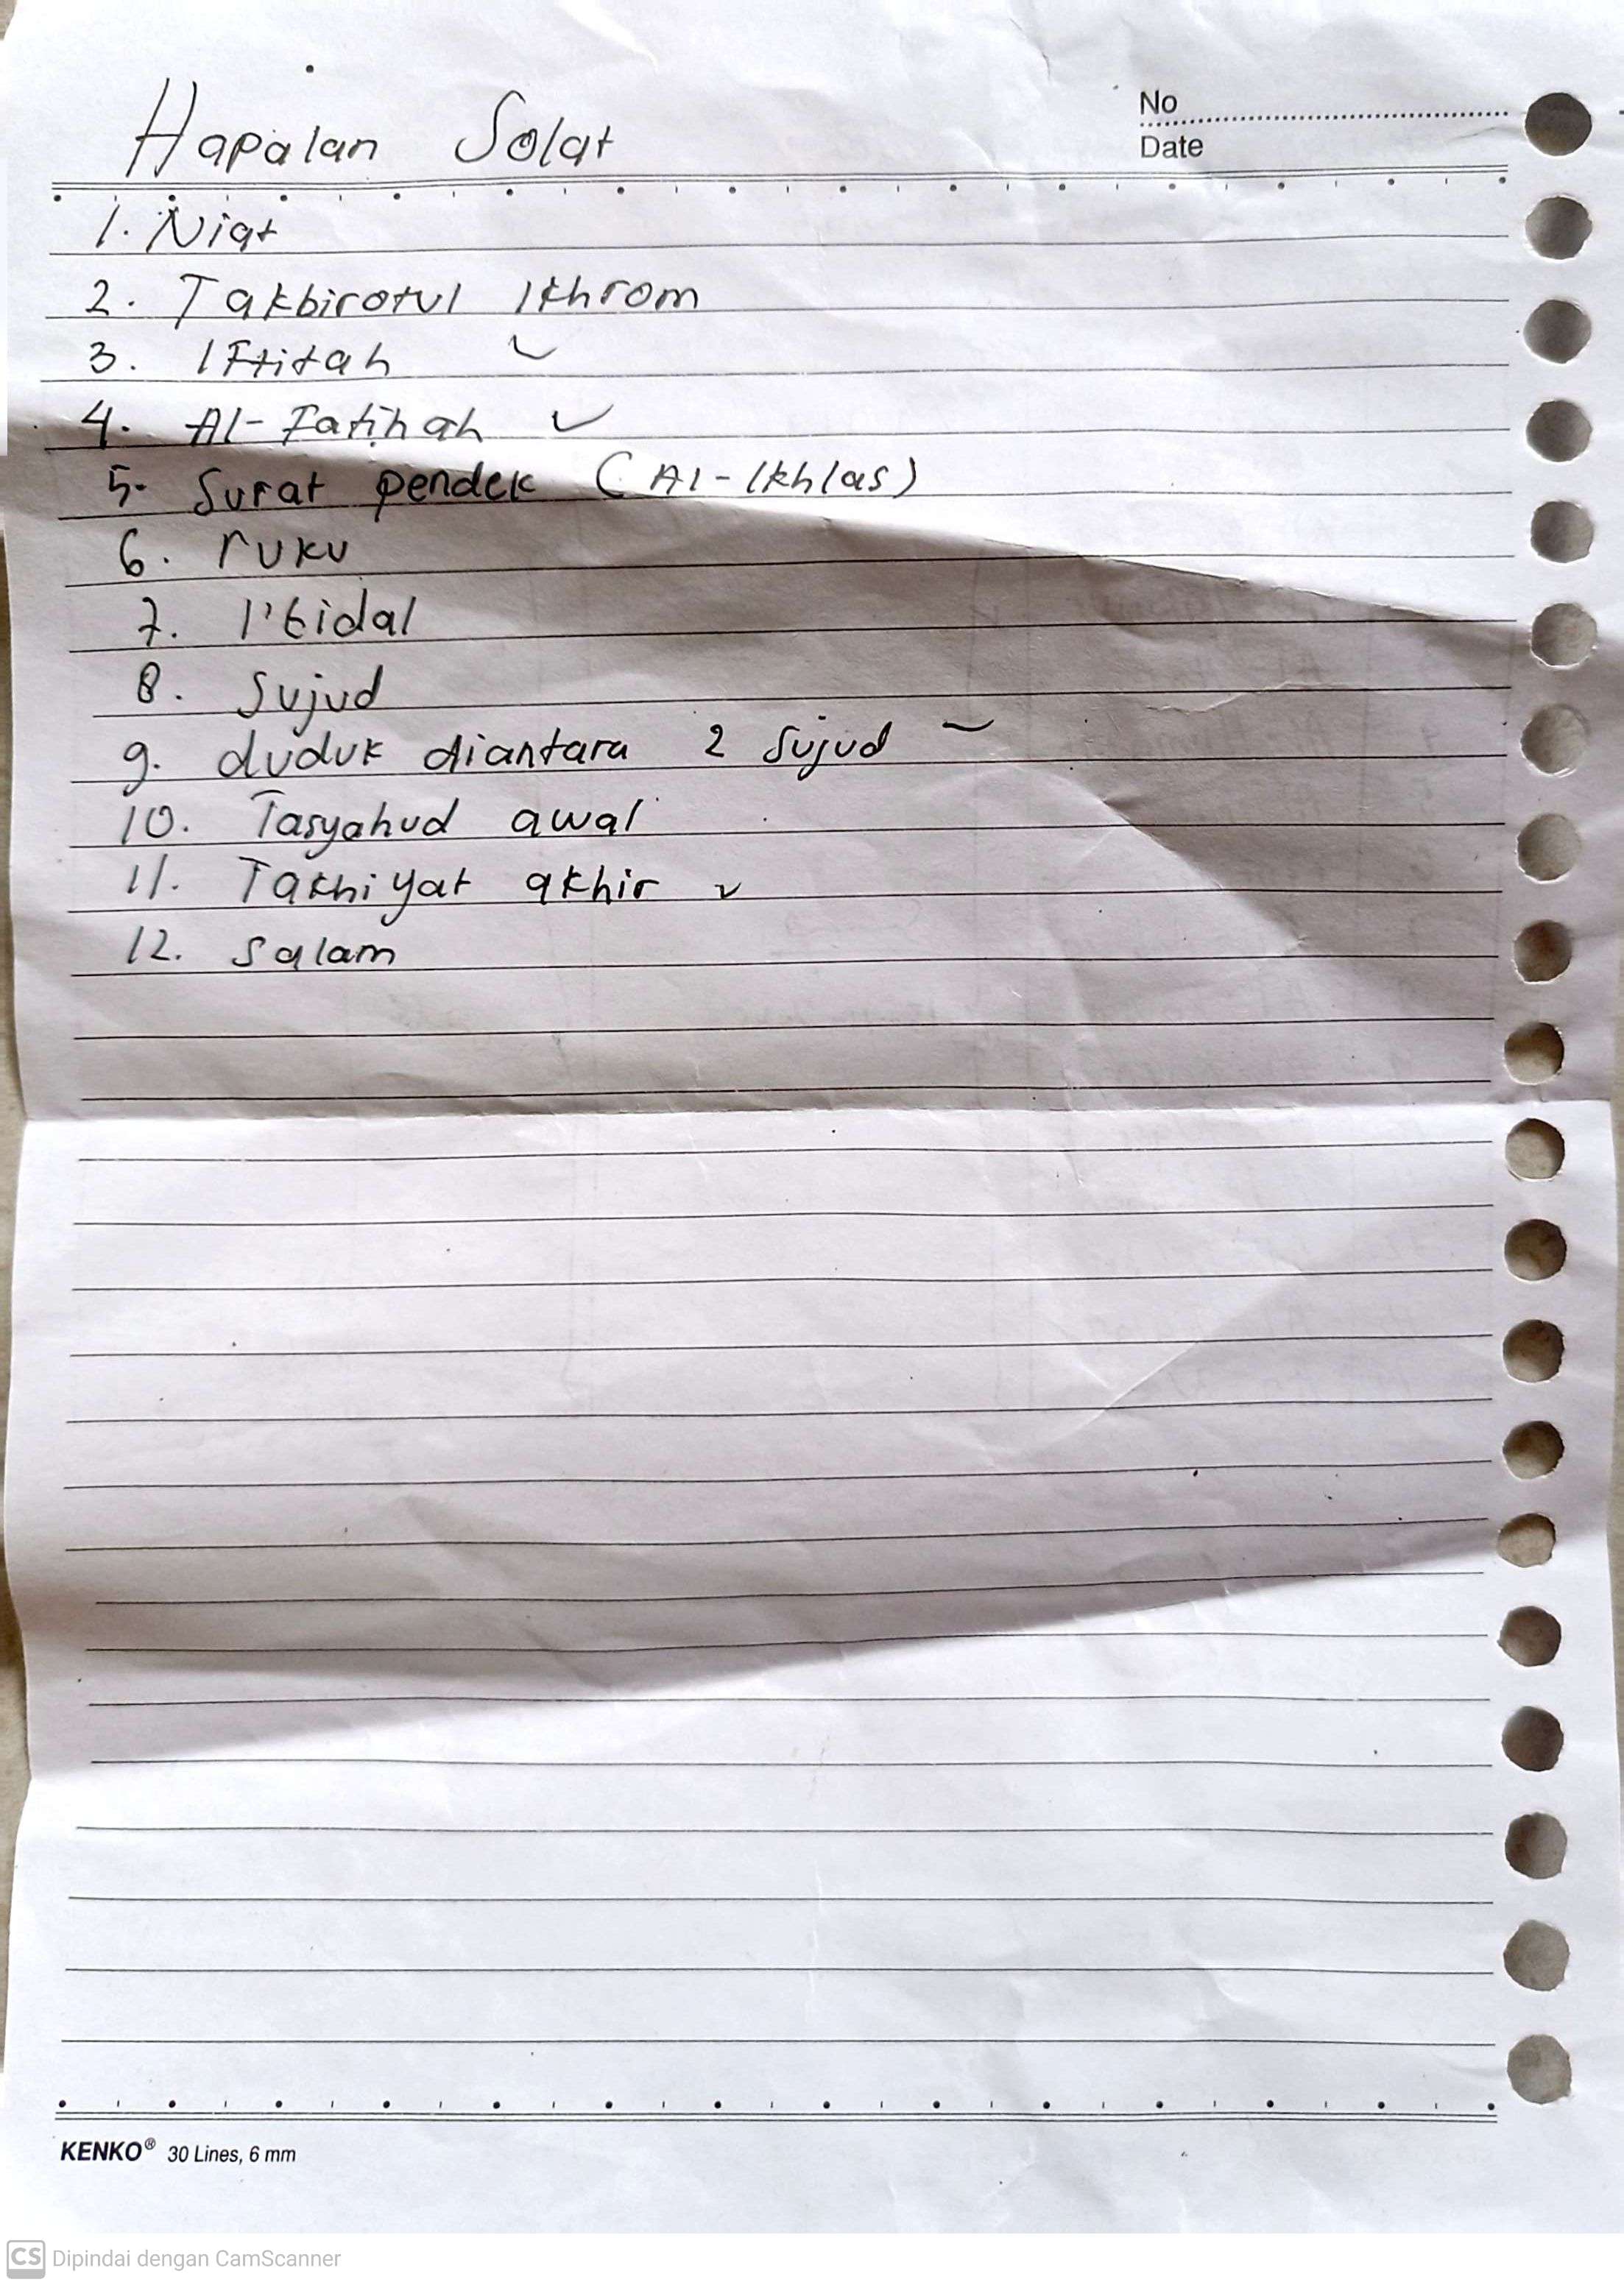 Hapalan Solat
No
Date
1. Niat
2. Takbirotul Ikhrom
3. Iftitah ✓
4. Al-Fatihah ✓
5. Surat pendek (Al-Ikhlas)
6. ruku
7. I'tidal
8. Sujud
9. duduk diantara 2 sujud ~
10. Tasyahud awal
11. Takhiyat akhir ✓
12. Salam
KENKO® 30 Lines, 6 mm
CS Dipindai dengan CamScanner